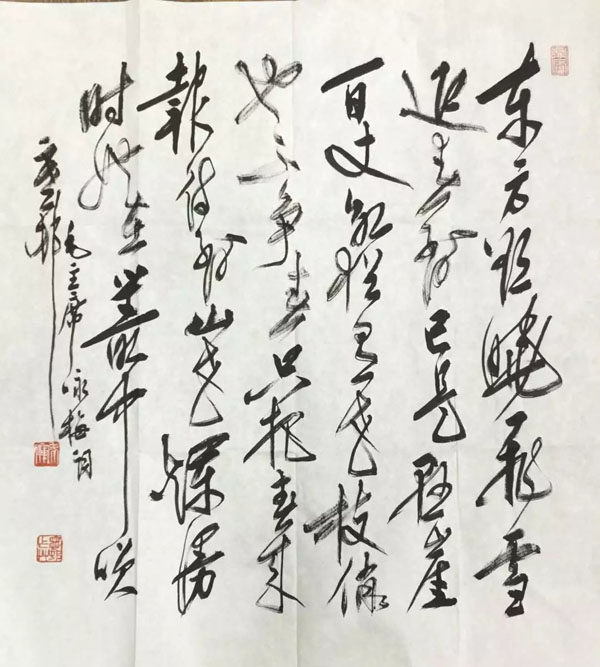 东方欲曉飛雪
迎春到已是悬崖
百丈冰犹有花枝俏
也不争春只把春来
報待到山花爛漫
时她在叢中咲
毛主席咏梅词